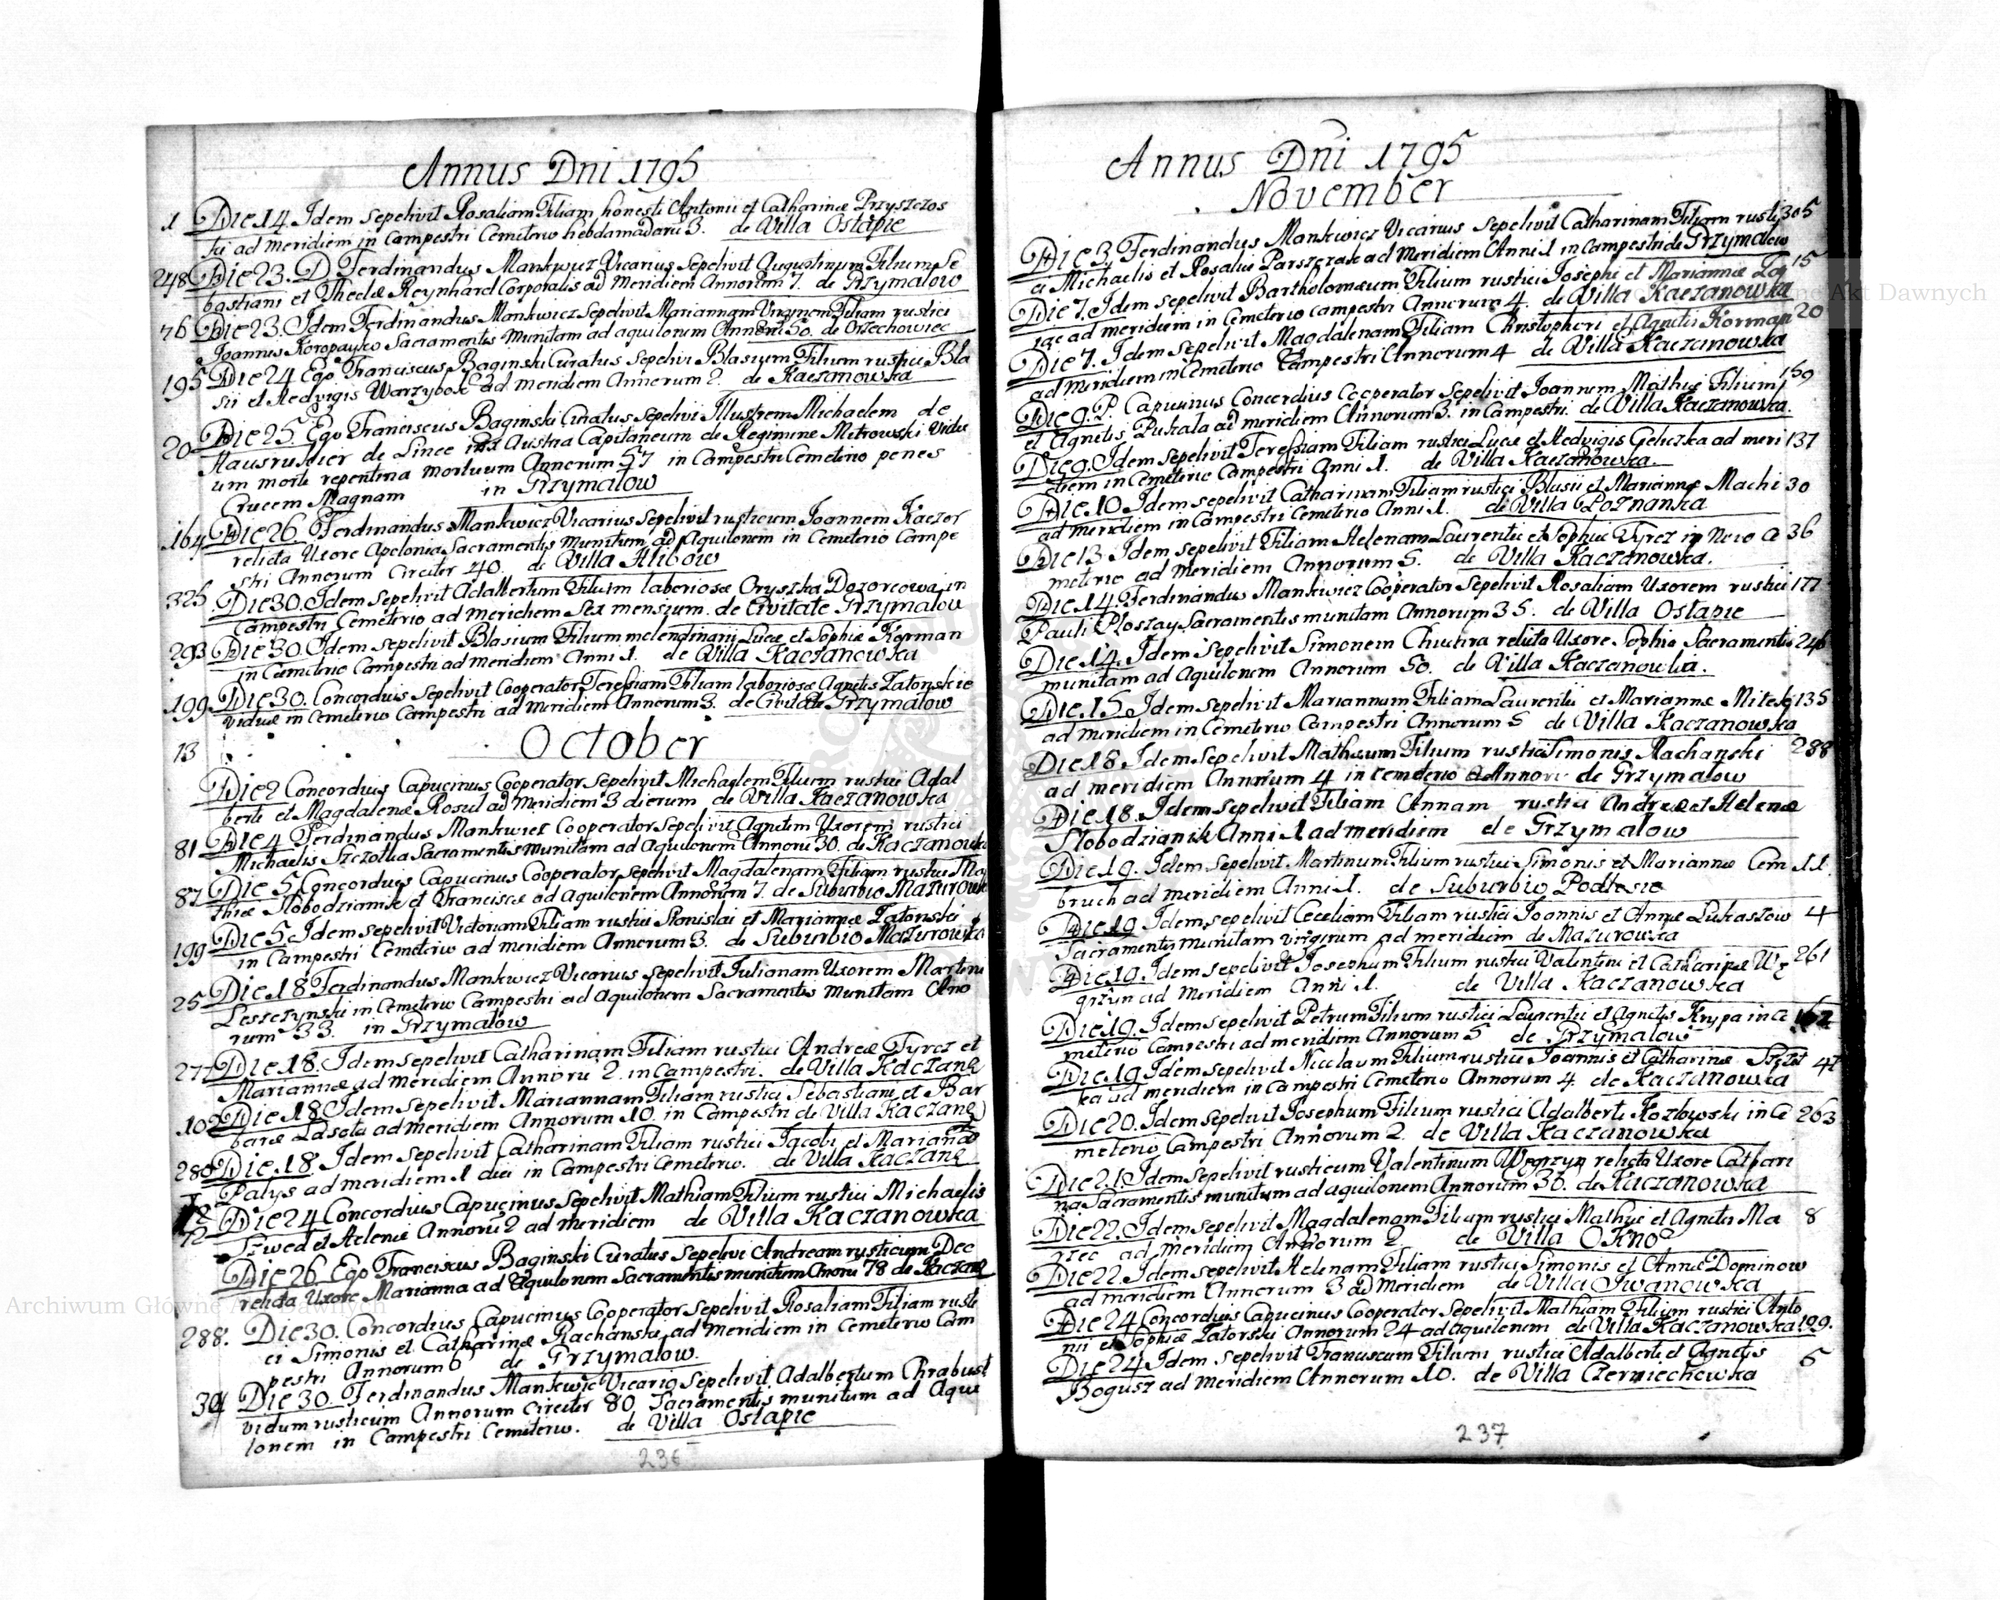 Annus Dni 1795
1 Die 14. Idem Sepelivit Rosaliam Filiam honesti Antonii et Catharinæ Przyszczos
ki ad Meridiem in Campestri Cemeterio hebdamadarū 3. de Villa Ostapie
248 Die 23. D. Ferdinandus Mankwicz Vicarius Sepelivit Augustinum Filium Se
bastiani et Theclæ Reynhard Corporalis ad Meridiem Annorum 7. de Grzymalow
76 Die 23. Idem Ferdinandus Mankwicz Sepelivit Mariannam Virginem Filiam rustici
Joannis Koropayko Sacramentis Munitam ad aquilonem Annorū 50. de Orzechowiec
195 Die 24 Ego Franciscus Baginski Curatus Sepelivi Blasium Filium rustici Bla
sii et Hedvigis Warzybok ad Meridiem Annorum 2. de Kaczanowka
20 Die 25. Ego Franciscus Baginski Curatus Sepelivi Illustrem Michaelem de
Hausrukier de Lince in Austria Capitaneum de Regimine Mitrowski Vidu
um morte repentina Mortuum Annorum 57 in Campestri Cemeterio penes
Crucem Magnam in Grzymalow
164 Die 26. Ferdinandus Mankwicz Vicarius Sepelivit rusticum Joannem Kaczor
relicta Uxore Apolonia Sacramentis Munitum ad Aquilonem in Cemeterio Campe
stri Annorum Circiter 40. de Villa Hlibow
325 Die 30. Idem Sepelivit Adalbertum Filium laboriosæ Oryszka Dozorcowa in
Campestri Cemeterio ad Meridiem Sex mensium. de Civitate Grzymalow
293 Die 30. Idem Sepelivit Blasium Filium molendinarii Lucæ et Sophiæ Korman
in Cemeterio Campestri ad meridiem Anni 1. de Villa Kaczanowka
199 Die 30. Concordius Sepelivit Cooperator Teressiam Filiam laboriosæ Agnetis Zatonskie
Viduæ in Cemeterio Campestri ad Meridiem Annorum 3. de Civitate Grzymalow
13 October
Die 2 Concordius Capucinus Cooperator Sepelivit Michaelem Filium rustici Adal
berti et Magdalenæ Rosul ad Meridiem 3 dierum de Villa Kaczanowka
81 Die 4 Ferdinandus Mankwicz Cooperator Sepelivit Agnetim Uxorem rustici
Michaelis Szczotka Sacramentis Munitam ad Aquilonem Annorū 30. de Kaczanowka
87 Die 5. Concordius Capucinus Cooperator Sepelivit Magdalenam Filiam rustici Ma
thiæ Slobodzianik et Franciscæ ad Aquilonem Annorum 7. de Suburbio Mazurowka
199 Die 5. Idem Sepelivit Victoriam Filiam rustici Stanislai et Mariannæ Zatonski
in Campestri Cemeterio ad meridiem Annorum 3. de Suburbio Mazurowka
25 Die 18 Ferdinandus Mankwicz Vicarius Sepelivit Julianam Uxorem Martini
Leszczynski in Cemeterio Campestri ad Aquilonem Sacramentis Munitam Ano
rum 33. in Grzymalow
274 Die 18. Idem Sepelivit Catharinam Filiam rustici Andreæ Tyrcz et
Mariannæ ad Meridiem Annorū 2. in Campestri. de Villa Kaczang
109 Die 18. Idem Sepelivit Mariannam Filiam rustici Sebastiani et Bar
baræ Lasota ad Meridiem Annorum 10. in Campestri de Villa Kaczang
280 Die 18. Idem Sepelivit Catharinam Filiam rustici Jacobi et Marianæ
Palys ad meridiem 1 diei in Campestri Cemeterio. de Villa Kaczang
72 Die 24 Concordius Capucinus Sepelivit Mathiam Filium rustici Michaelis
Szwed et Helenæ Annorū 2 ad Meridiem de Villa Kaczanowka
Die 26 Ego Franciscus Baginski Curatus Sepelivi Andream rusticum Dec
relicta Uxore Marianna ad Aquilonem Sacramentis munitum Anorū 78 de Kaczang
288. Die 30. Concordius Capucinus Cooperator Sepelivit Rosaliam Filiam rusti
ci Simonis et Catharinæ Rachanski ad Meridiem in Cemeterio Cam
pestri Annorum 6 de Grzymalow.
304 Die 30. Ferdinandus Mankwic Vicario Sepelivit Adalbertum Chrabust
vidum rusticum Annorum Circiter 80 Sacramentis munitum ad Aqui
lonem in Campestri Cemeterio. de Villa Ostapie
236
Annus Dni 1795
November
Die 3. Ferdinandus Mankwicz Vicarius Sepelivit Catharinam Filiam rusti 305
ci Michaelis et Rosaliæ Parszczak ad Meridiem Anni 1 in Campestri de Grzymalow
Die 7. Idem Sepelivit Bartholomæum Filium rustici Josephi et Mariannæ Zay 15
ad meridiem in Cemeterio campestri Annorum 4. de Villa Kaczanowka
Die 7. Idem Sepelivit Magdalenam Filiam Christophori et Agnetis Korman 20
ad Meridiem in Cemeterio Campestri Annorum 4 de Villa Kaczanowka
Die 9. P. Capucinus Concordius Cooperator Sepelivit Joannem Mathiæ Filium 159
et Agnetis Puszala ad meridiem Annorum 3. in Campestri. de Villa Kaczanowka.
Die 9. Idem Sepelivit Teressiam Filiam rustici Lucæ et Hedvigis Geliczka ad meri 137
diem in Cemeterio Campestri Anni 1. de Villa Kaczanowka.
Die 10. Idem Sepelivit Catharinam Filiam rustici Blasii et Mariannæ Machi 30
ad meridiem in Campestri Cemeterio Anni 1. de Villa Poznanka
Die 13 Idem Sepelivit Filiam Helenam Laurentii et Sophiæ Tyrcz in Novo Ce 36
meterio ad Meridiem Annorum 5. de Villa Kaczanowka.
Die 14. Ferdinandus Mankwicz Cooperator Sepelivit Rosaliam Uxorem rustici 177
Pauli Ploszay Sacramentis munitam Annorum 35. de Villa Ostapie
Die 14. Idem Sepelivit Simonem Chwira relicta Uxore Sophia Sacramentis 246
munitum ad Aquilonem Annorum 50. de Villa Kaczanowka.
Die 15. Idem Sepelivit Mariannam Filiam Laurentii et Mariannæ Mitek 135
ad meridiem in Cemeterio Campestri Annorum 5 de Villa Kaczanowka
Die 18 Idem Sepelivit Mathæum Filium rustici Simonis Rachanski 288
ad meridiem Annorum 4 in Cemeterio de Grzymalow
Die 18. Idem Sepelivit Filiam Annam rustici Andreæ et Helenæ
Slobodzianik Anni 1 ad meridiem de Grzymalow
Die 19. Idem Sepelivit Martinum Filium rustici Simonis et Mariannæ Cem 11.
bruch ad meridiem Anni 1. de Suburbio Podlesie
Die 19 Idem Sepelivit Ceceliam Filiam rustici Joannis et Annæ Lukaszow 4
Sacramentis munitam virginem ad meridiem de Mazurowka
Die 19. Idem Sepelivit Josephum Filium rustici Valentini et Catharinæ We 261
grzyn ad Meridiem Anni 1. de Villa Kaczanowka
Die 19. Idem Sepelivit Petrum Filium rustici Laurentii et Agnetis Krypa in Ce 162
meterio Campestri ad meridiem Annorum 5 de Grzymalow
Die 19 Idem Sepelivit Nicolaum Filium rustici Joannis et Catharinæ Szczot 47
ka ad meridiem in Campestri Cemeterio Annorum 4. de Kaczanowka
Die 20. Idem Sepelivit Josephum Filium rustici Adalberti Kozlowski in Ce 263
meterio Campestri Annorum 2. de Villa Kaczanowka
Die 21. Idem Sepelivit rusticum Valentinum Wegrzyn relicta Uxore Cathari
na Sacramentis munitum ad aquilonem Annorum 36. de Kaczanowka
Die 22. Idem Sepelivit Magdalenam Filiam rustici Mathiæ et Agnetis Ma 8
zrec ad Meridiem Annorum 2 de Villa Okno
Die 22. Idem Sepelivit Helenam Filiam rustici Simonis et Annæ Dominow
ad meridiem Annorum 3 ad Meridiem de Villa Iwanowka
Die 24 Concordius Capucinus Cooperator Sepelivit Mathiam Filium rustici Anto
nii et Sophiæ Zatorski Annorum 24 ad aquilonem de Villa Kaczanowka 199.
Die 24 Idem Sepelivit Franciscum Filium rustici Adalberti et Agnetis 5
Bogusz ad Meridiem Annorum 10. de Villa Czerniechowka
237
Archiwum Główne Akt Dawnych